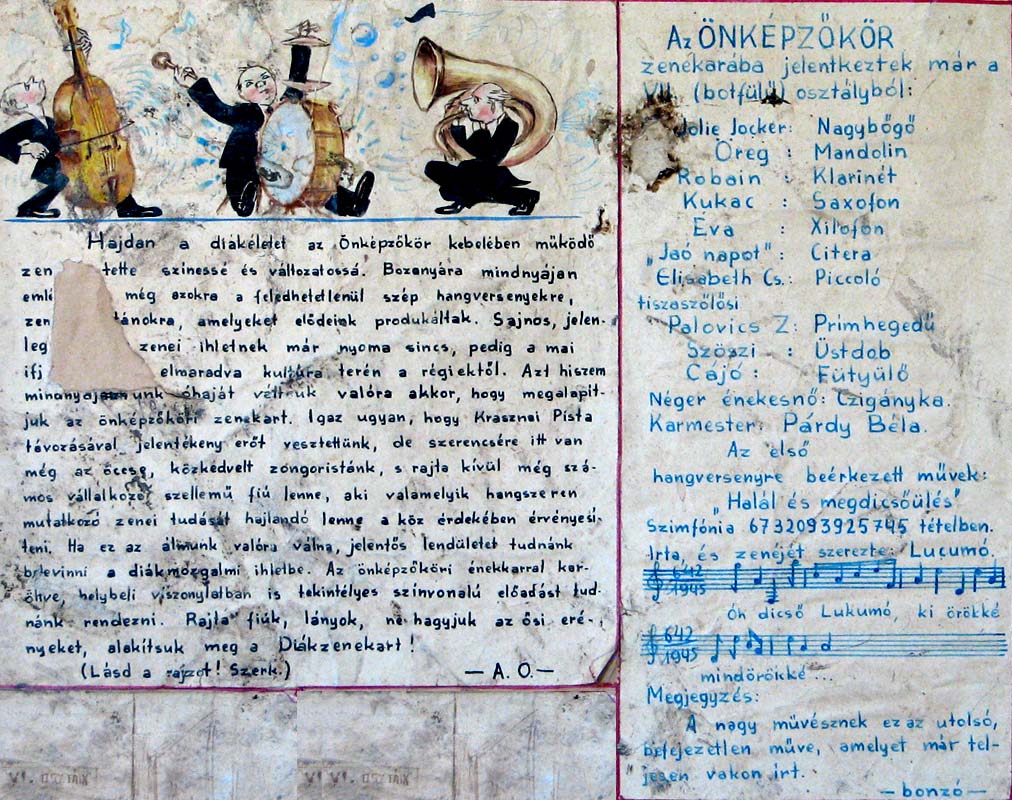 Hajdan a diákéletet az Önképzőkör kebelében működő
zen tette színessé és változatossá. Bizonyára mindnyájan
emlé még azokra a feledhetetlenül szép hangversenyekre,
zen tánokra, amelyeket elődeink produkáltak. Sajnos, jelen-
leg zenei ihletnek már nyoma sincs, pedig a mai
ifj elmaradva kultúra terén a régiektől. Azt hiszem
óhaját valóra akkor, hogy megalapít-
juk az önképzőköri zenekart. Igaz ugyan, hogy Krasznai Pista
távozásával jelentékeny erőt vesztettünk, de szerencsére itt van
még az öccse, közkedvelt zongoristánk, s rajta kívül még szá-
mos vállalkozó szellemű fiú lenne, aki valamelyik hangszeren
mutatkozó zenei tudását hajlandó lenne a köz érdekében érvényesí-
teni. Ha ez az álmunk valóra válna, jelentős lendületet tudnánk
belevinni a diákmozgalmi ihletbe. Az önképzőköri énekkarral kar-
öltve, helybeli viszonylatban is tekintélyes színvonalú előadást tud-
nánk rendezni. Rajta fiúk, lányok, ne hagyjuk az ősi eré-
nyeket, alakítsuk meg a Diákzenekart!
(Lásd a rajzot! Szerk.) — A. O. —
Az ÖNKÉPZŐKÖR
zenekarába jelentkeztek már a
VII. (botfülű) osztályból:
Jolie Jocker: Nagybőgő
Öreg : Mandolin
Robain : Klarinét
Kukac : Saxofon
Éva : Xilofon
„Jaó napot" : Citera
Elisabeth Cs.: Piccoló
tiszaszőlősi
Palovics Z: Prímhegedű
Szöszi : Üstdob
Cajó : Fütyülő
Néger énekesnő: Czigányka.
Karmester: Párdy Béla.
Az első
hangversenyre beérkezett művek:
„Halál és megdicsőülés"
Szimfónia 6732093925745 tételben.
Irta, és zenéjét szerezte: Lucumó.
642
1945
Óh dicső Lukumó, ki örökké
642
1945
mindörökké ...
Megjegyzés:
A nagy művésznek ez az utolsó,
befejezetlen műve, amelyet már tel-
jesen vakon írt.
— bonzó —
VI. OSZTÁLY
VI VI. OSZTÁLY